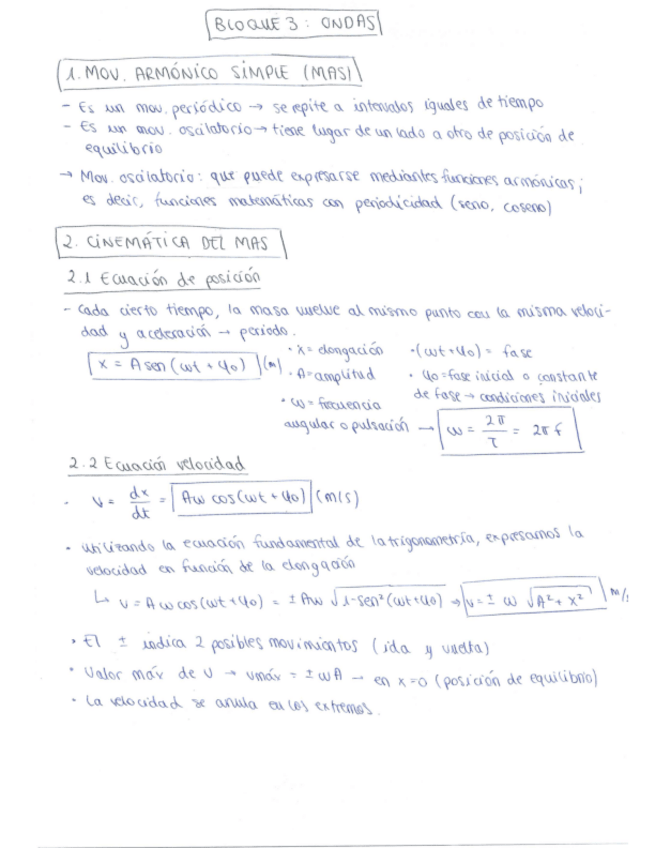 BLOQUE 3: ONDAS
1. MOV. ARMÓNICO SIMPLE (MAS)
- Es un mov. periódico → se repite a intervalos iguales de tiempo
- Es un mov. oscilatorio → tiene lugar de un lado a otro de posición de
equilibrio
→ Mov. oscilatorio: que puede expresarse mediantes funciones armónicas;
es decir, funciones matemáticas con periodicidad (seno, coseno)
2. CINEMÁTICA DEL MAS
2.1 Ecuación de posición
- Cada cierto tiempo, la masa vuelve al mismo punto con la misma veloci-
dad y aceleración → periodo.
x = A sen (ωt + φ0) (m)
· x = elongación
· A = amplitud
· ω = frecuencia
angular o pulsación → ω = 2π/T = 2π f
· (ωt + φ0) = fase
· φ0 = fase inicial o constante
de fase → condiciones iniciales
2.2 Ecuación velocidad
- v = dx/dt = Aω cos (ωt + φ0) (m/s)
· Utilizando la ecuación fundamental de la trigonometría, expresamos la
velocidad en función de la elongación
↳ v = A ω cos (ωt + φ0) = ± Aω √1 - sen² (ωt + φ0) → v = ± ω √A² + x² m/s
· El ± indica 2 posibles movimientos (ida y vuelta)
· Valor máx de v → vmáx = ± ωA → en x=0 (posición de equilibrio)
· La velocidad se anula en los extremos.